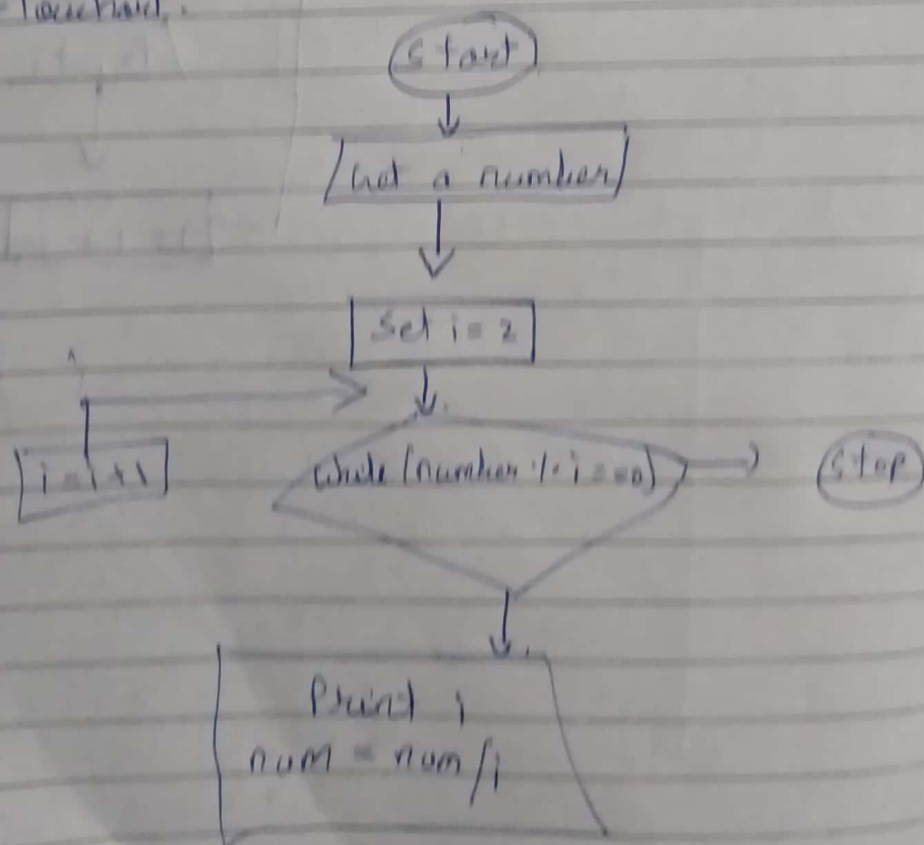 Start
Get a number
Set i = 2
i = i + 1
while (number % i == 0)
Stop
Print i
num = num / i